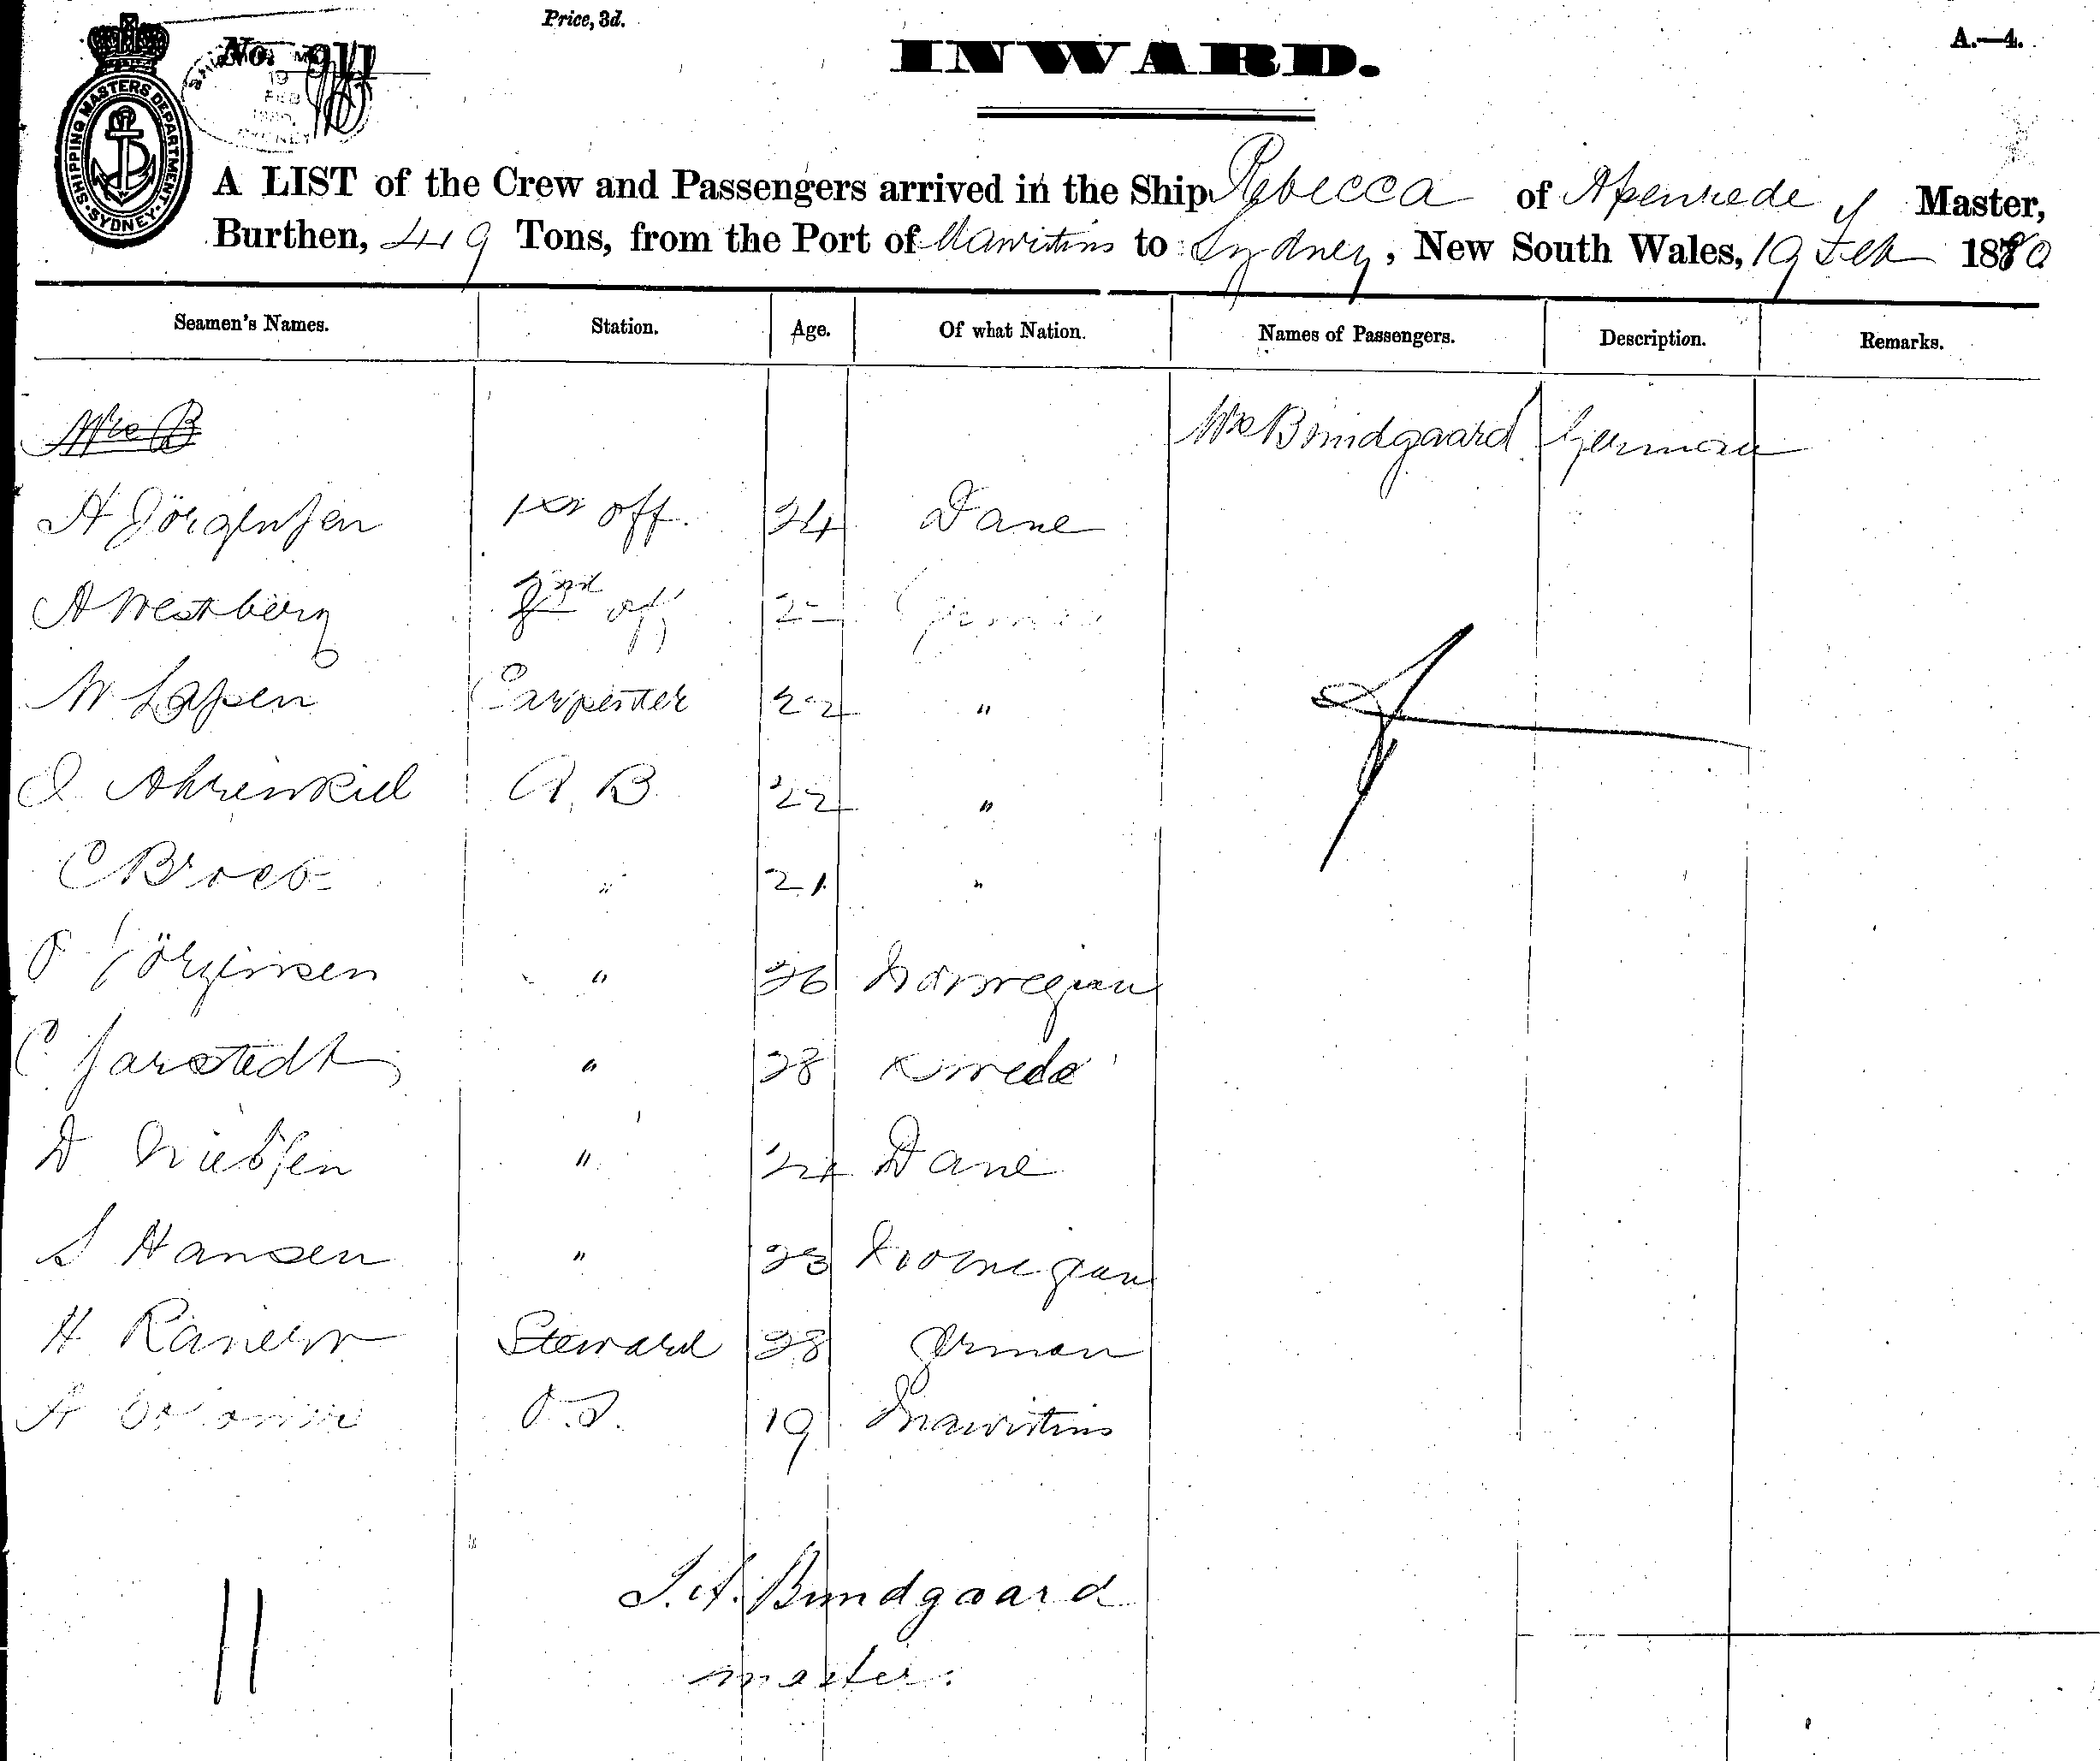 Price, 3d.
A.—4.
No.
INWARD.
SHIPPING MASTERS DEPARTMENT · SYDNEY ·
19 FEB
A LIST of the Crew and Passengers arrived in the Ship Rebecca of Apenrede Master,
Burthen, 419 Tons, from the Port of Mauritius to Sydney, New South Wales, 19 Feb 1880
Seamen's Names. Station. Age. Of what Nation. Names of Passengers. Description. Remarks.
Mrs B Mrs Bundgaard German
A Jörgensen 1st off. 24 Dane
A Westberg 2nd off German
Carpenter 22 "
Ahrenkiel A. B 22 "
C Brock " 21 "
O Jörgensen " 26 Norwegian
C. Jarstedt " 28 Swede
D Nielsen " 24 Dane
S Hansen " 23 Norwegian
H Steward 28 German
A O.S. 19 Mauritius
11
J. A. Bundgaard
master.